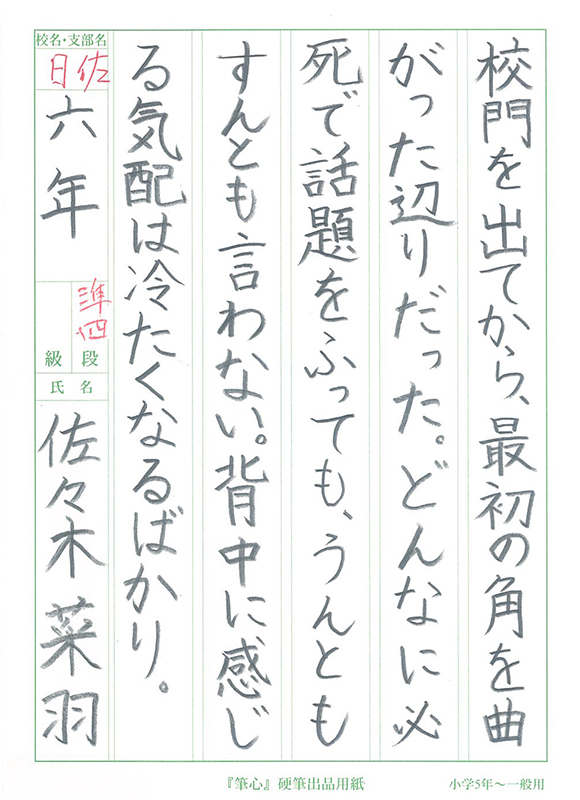 校門を出てから、最初の角を曲
がった辺りだった。どんなに必
死で話題をふっても、うんとも
すんとも言わない。背中に感じ
る気配は冷たくなるばかり。
校名・支部名
佐日
六年
準四
段
級
氏名
佐々木菜羽
『筆心』硬筆出品用紙
小学5年〜一般用